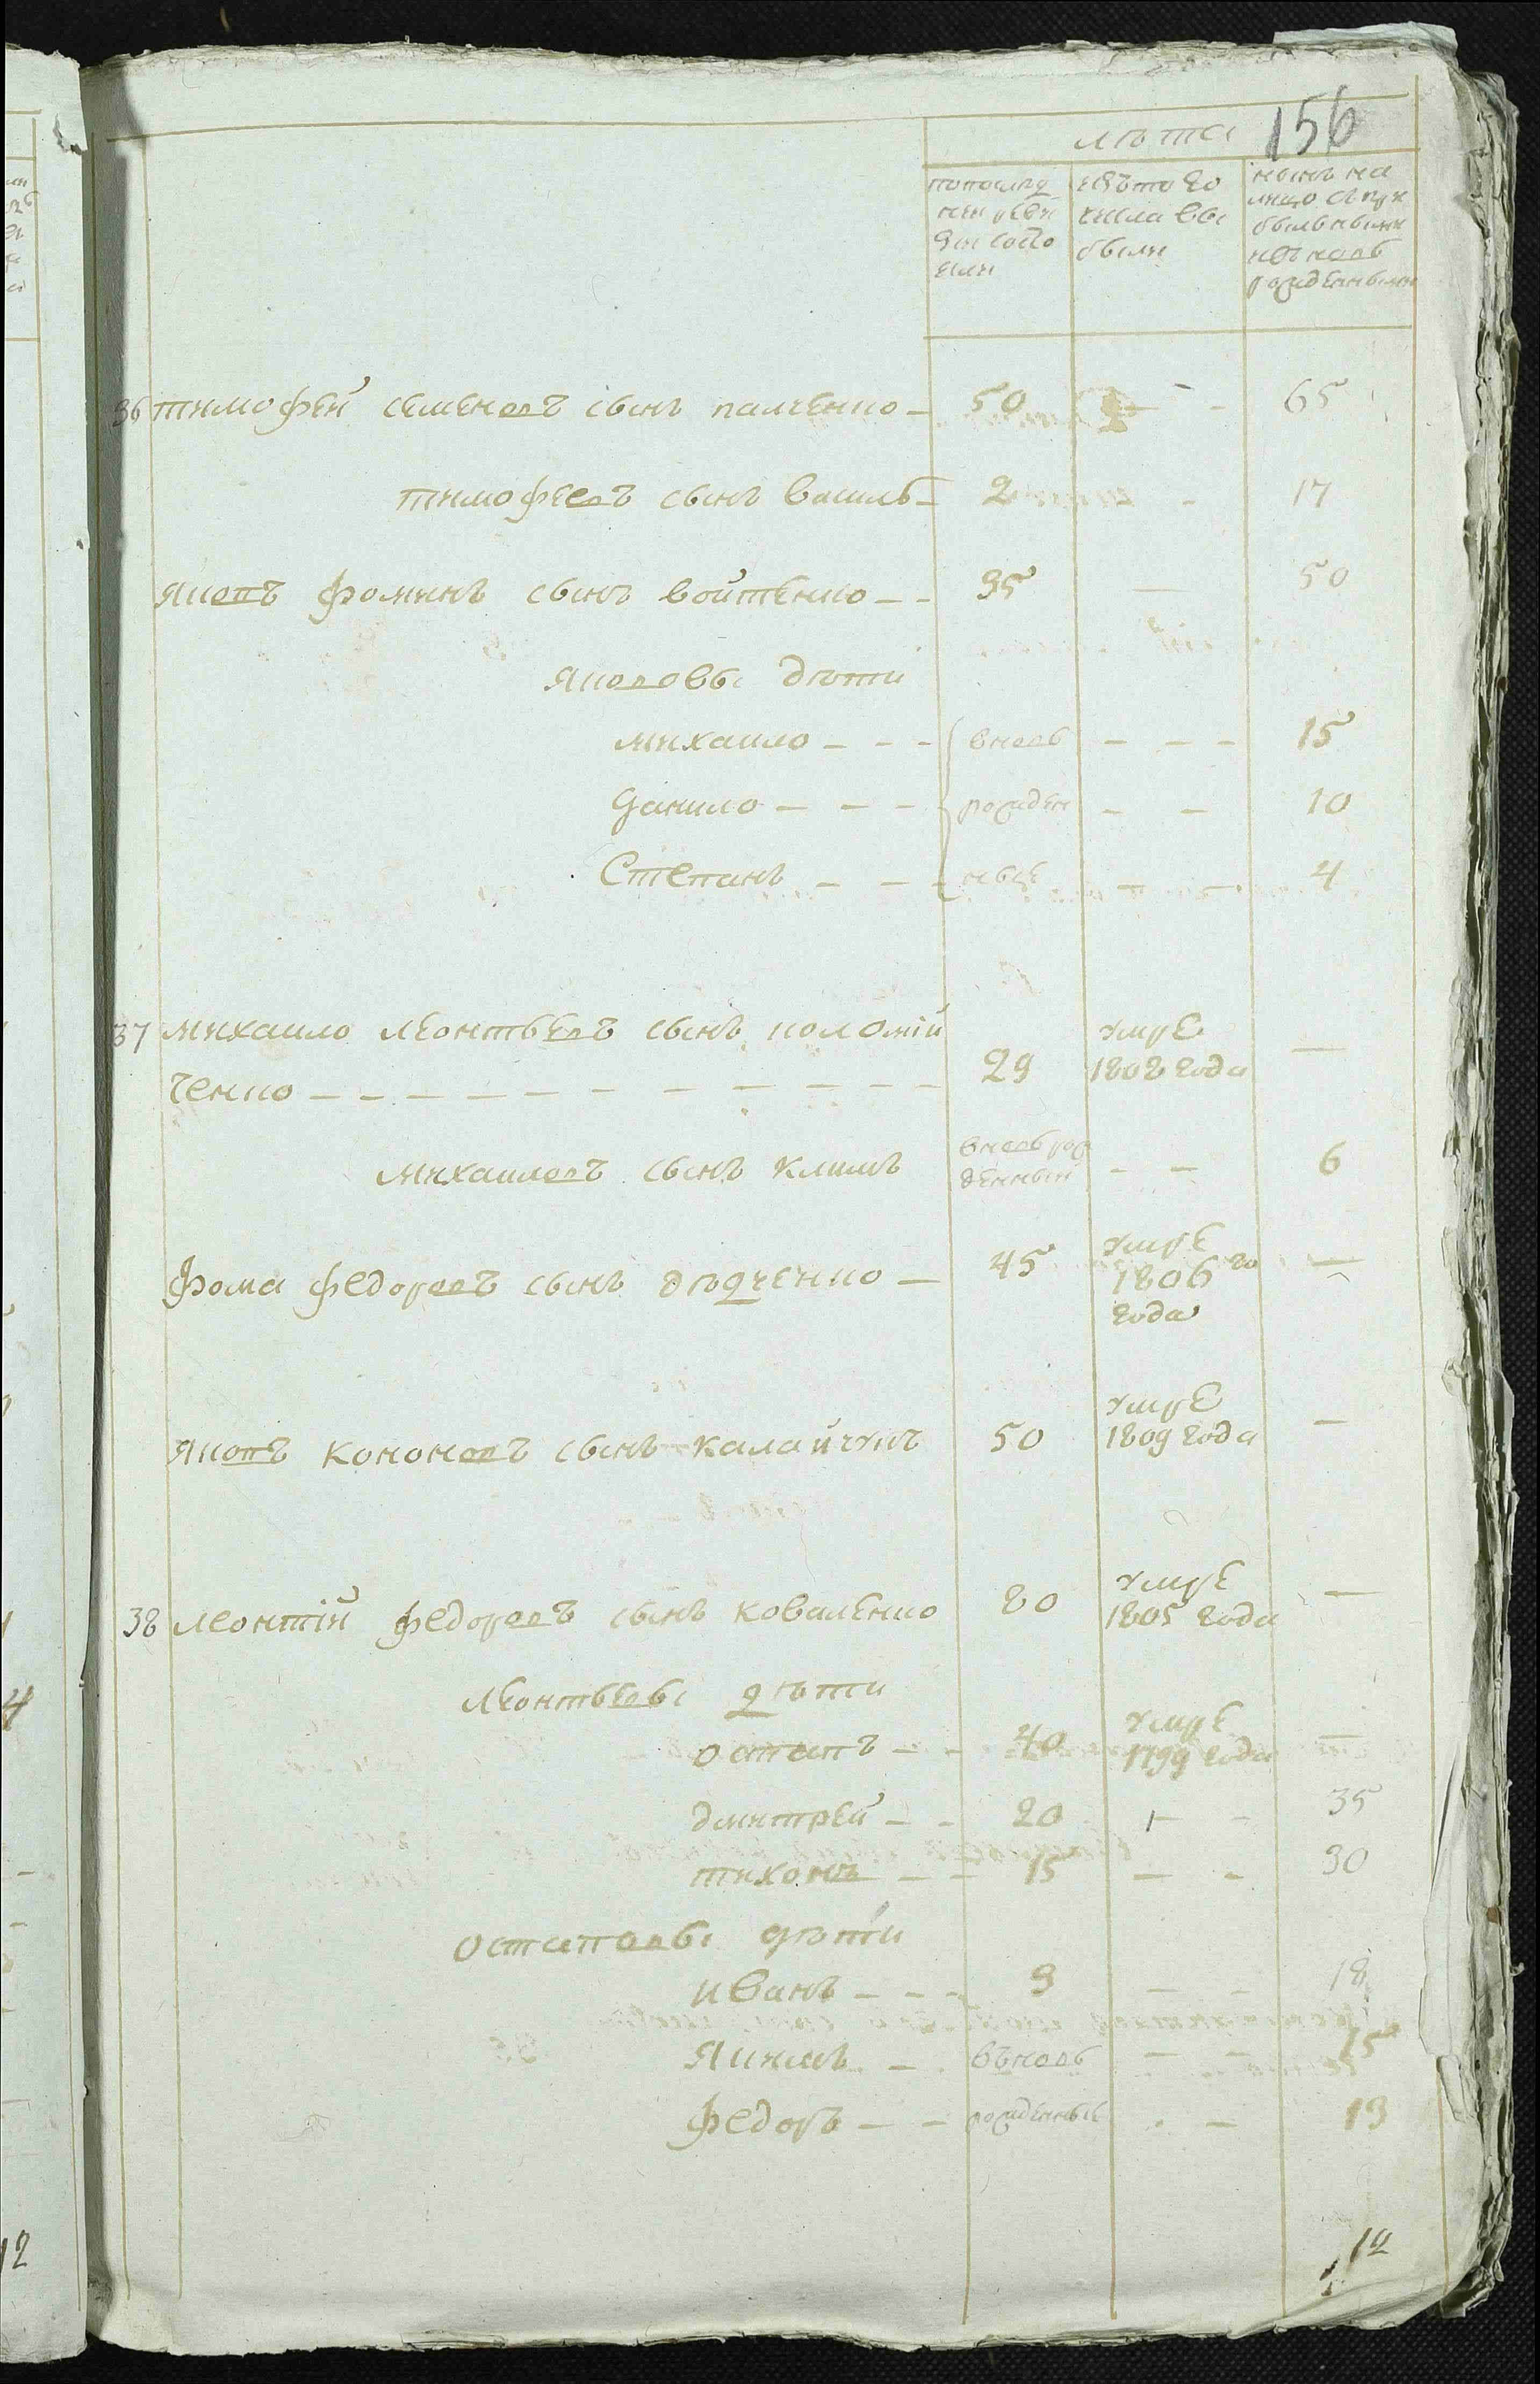 156
лѣта
попослѣд
ней реви
зіи состо
яли
изъ того
числа вы
были
нынѣ на
лицо съ при
былыми
и вновь
рожденными
36 тимофей семеновъ сынъ палченко — 50 — - 65
тимофеевъ сынъ василь — 2 - 17
якопъ фоминъ сынъ войтенко — - 35 — 50
якововы дѣти
михаило - - - вновь - - - 15
данило - - - рожден - - 10
Степанъ - - - ные - - 4
37 михаило леонтьевъ сынъ коломій
ченко - - - - - - - - - - 29 умре
1808 года —
михаиловъ сынъ климъ вновь рож
денный - - 6
фома федоровъ сынъ дѣдченко — 45 умре
1806 го
года —
якопъ кононовъ сынъ калайчукъ 50 умре
1809 года —
38 леонтій федоровъ сынъ коваленко 80 умре
1805 года —
леонтьевы дѣти
остапъ - - 40 умре
1799 года —
дмитрей - - 20 - - 35
тихонъ - - 15 - - 30
остаповы дѣти
иванъ - - - 3 - - 18
якимъ - въновь - - 15
федоръ - - рожденные - - 13
12